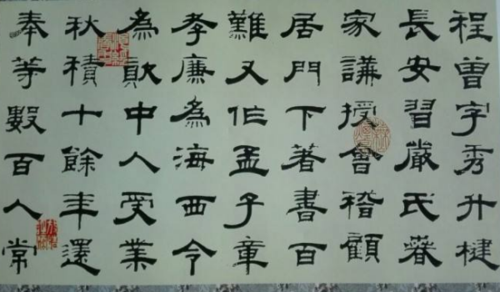 程曾字秀升楗
長安習嚴氏春
家講授會稽顧
居門下著書百
難又作孟子章
孝廉為海西令
為中人受業
秋積十餘年還
奉等數百人常